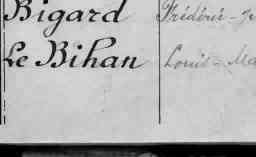 Bigard Frédéric-Je
Le Bihan Louis-Ma